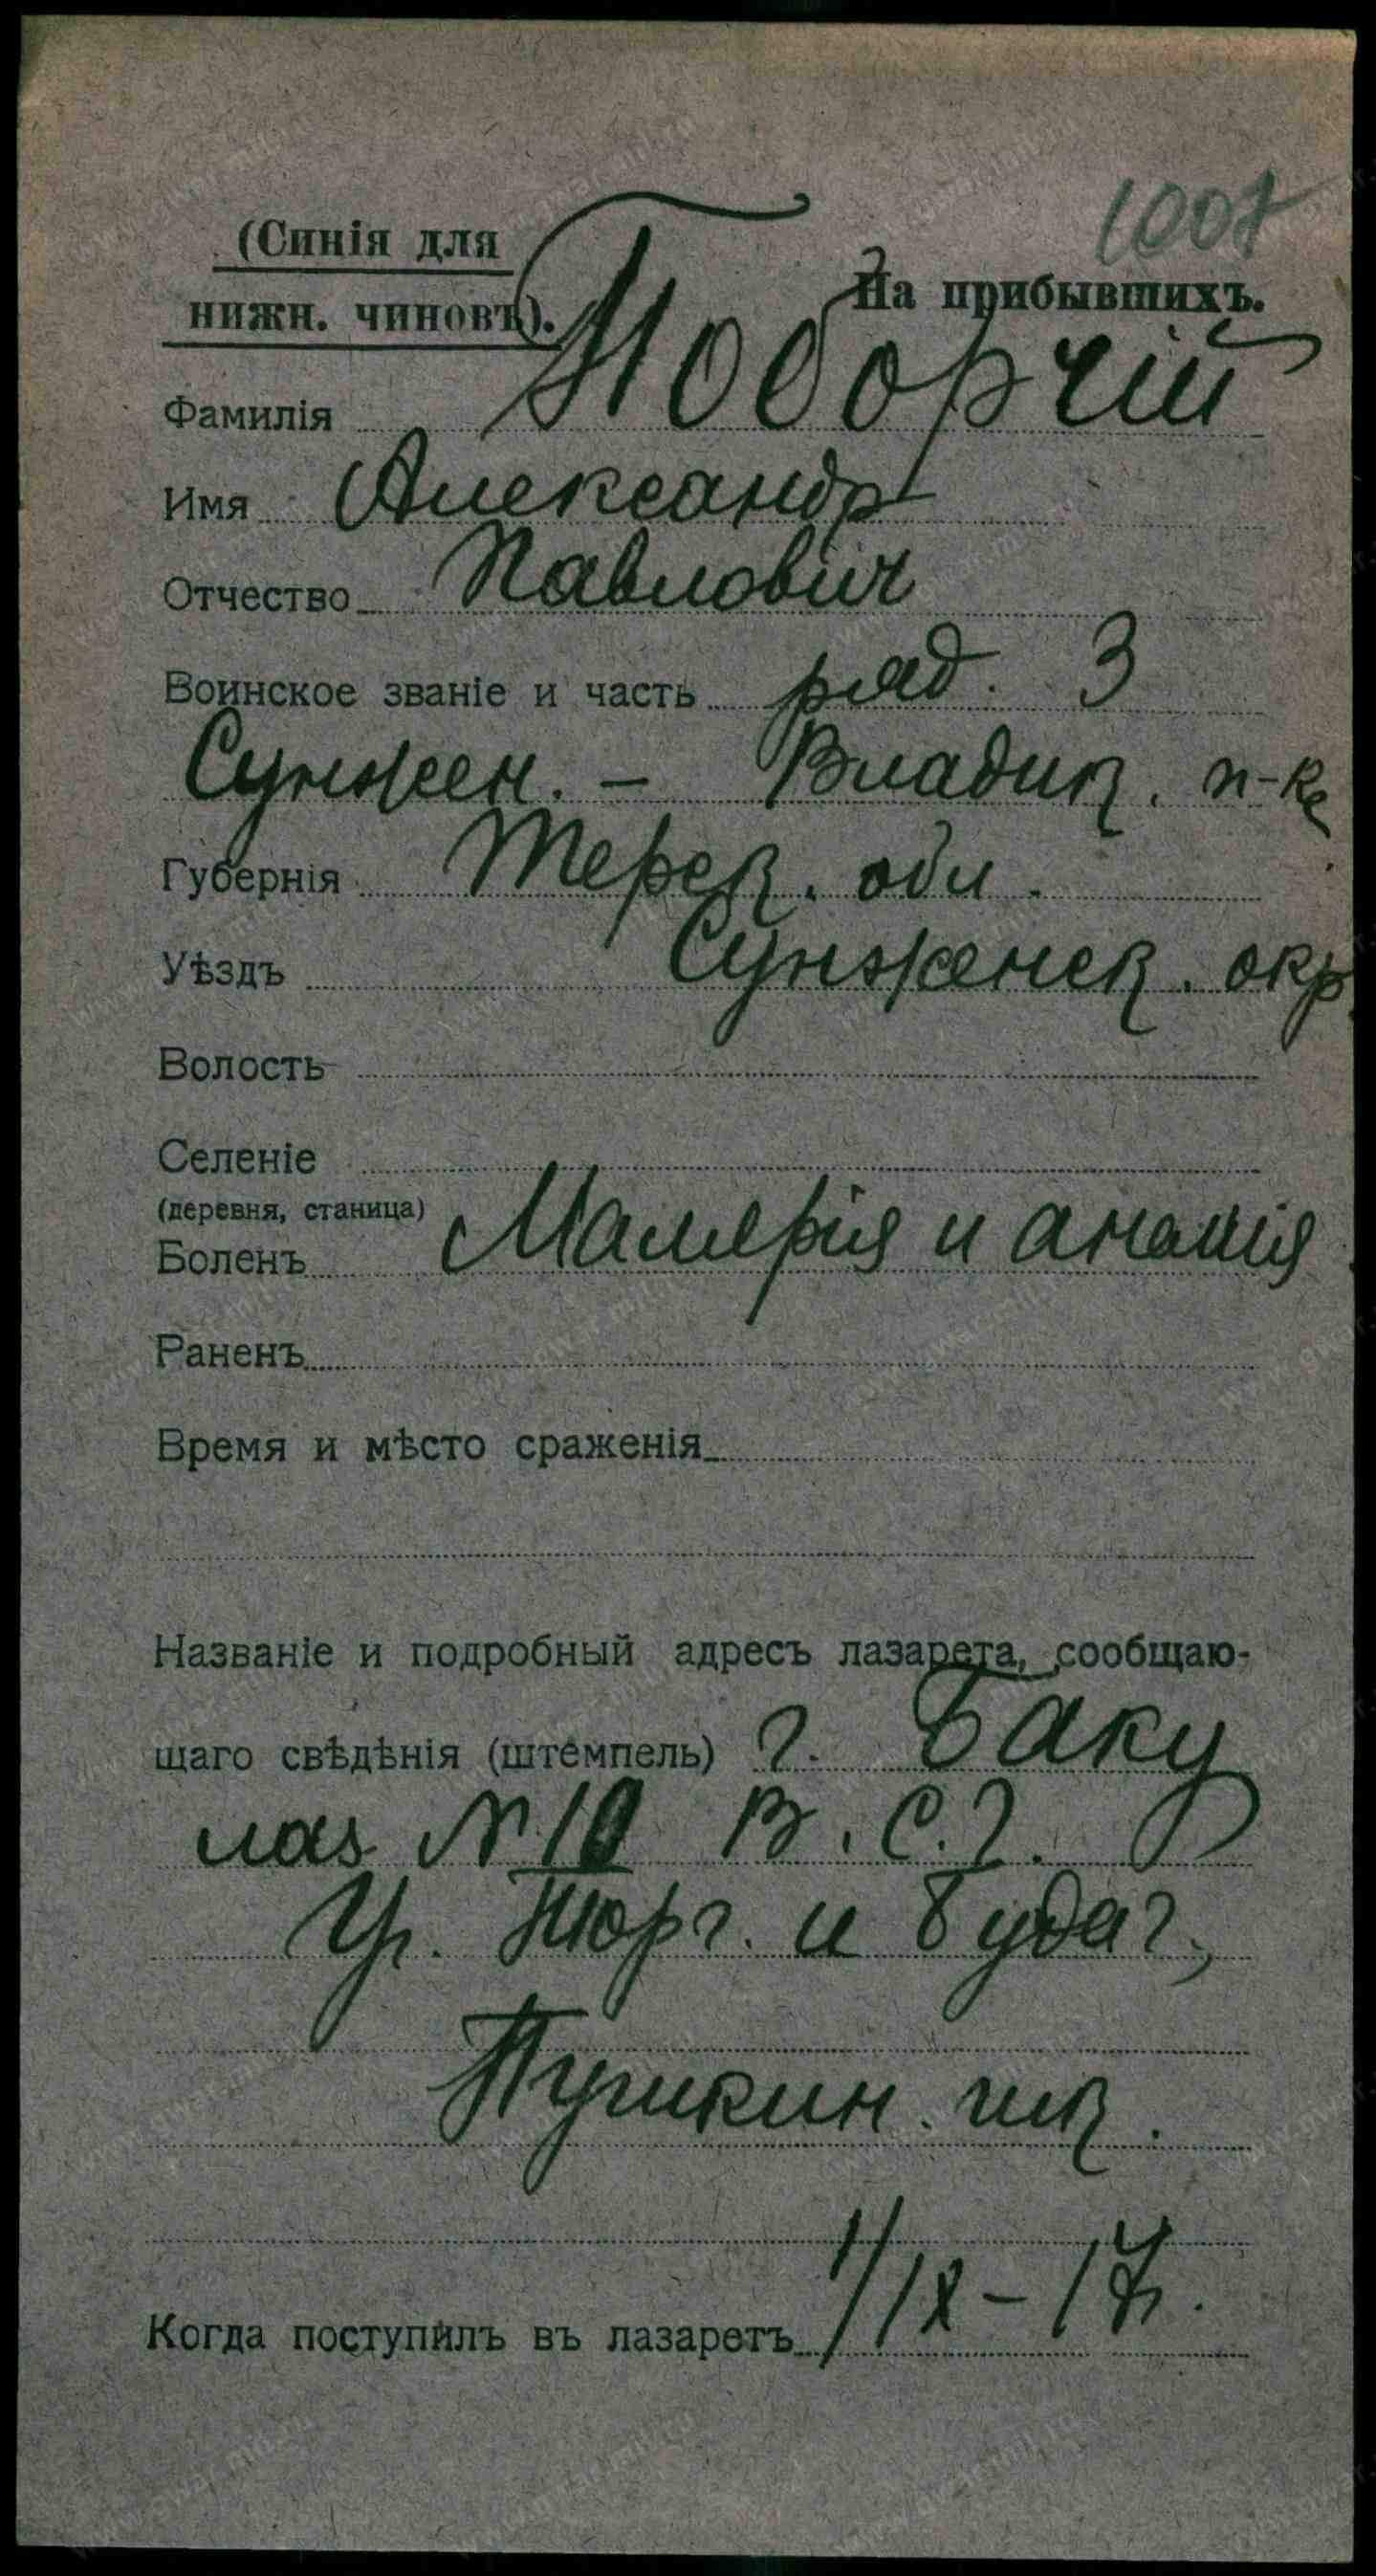 1007
(Синія для
нижн. чиновъ).
На прибывшихъ.
Фамилія Поборчій
Имя Александр
Отчество Павлович
Воинское званіе и часть ряд. 3
Сунжен. - Владик. п-ка
Губернія Терск. обл.
Уѣздъ Сунженск. окр
Волость
Селеніе
(деревня, станица)
Боленъ Малярія и анемія
Раненъ
Время и мѣсто сраженія
Названіе и подробный адресъ лазарета, сообщаю-
щаго свѣдѣнія (штемпель) г. Баку
лаз №10 В. С. Г.
Уг. Нюрг. и Будаг.,
Пушкин. шк.
Когда поступилъ въ лазаретъ 1/IX-17г.